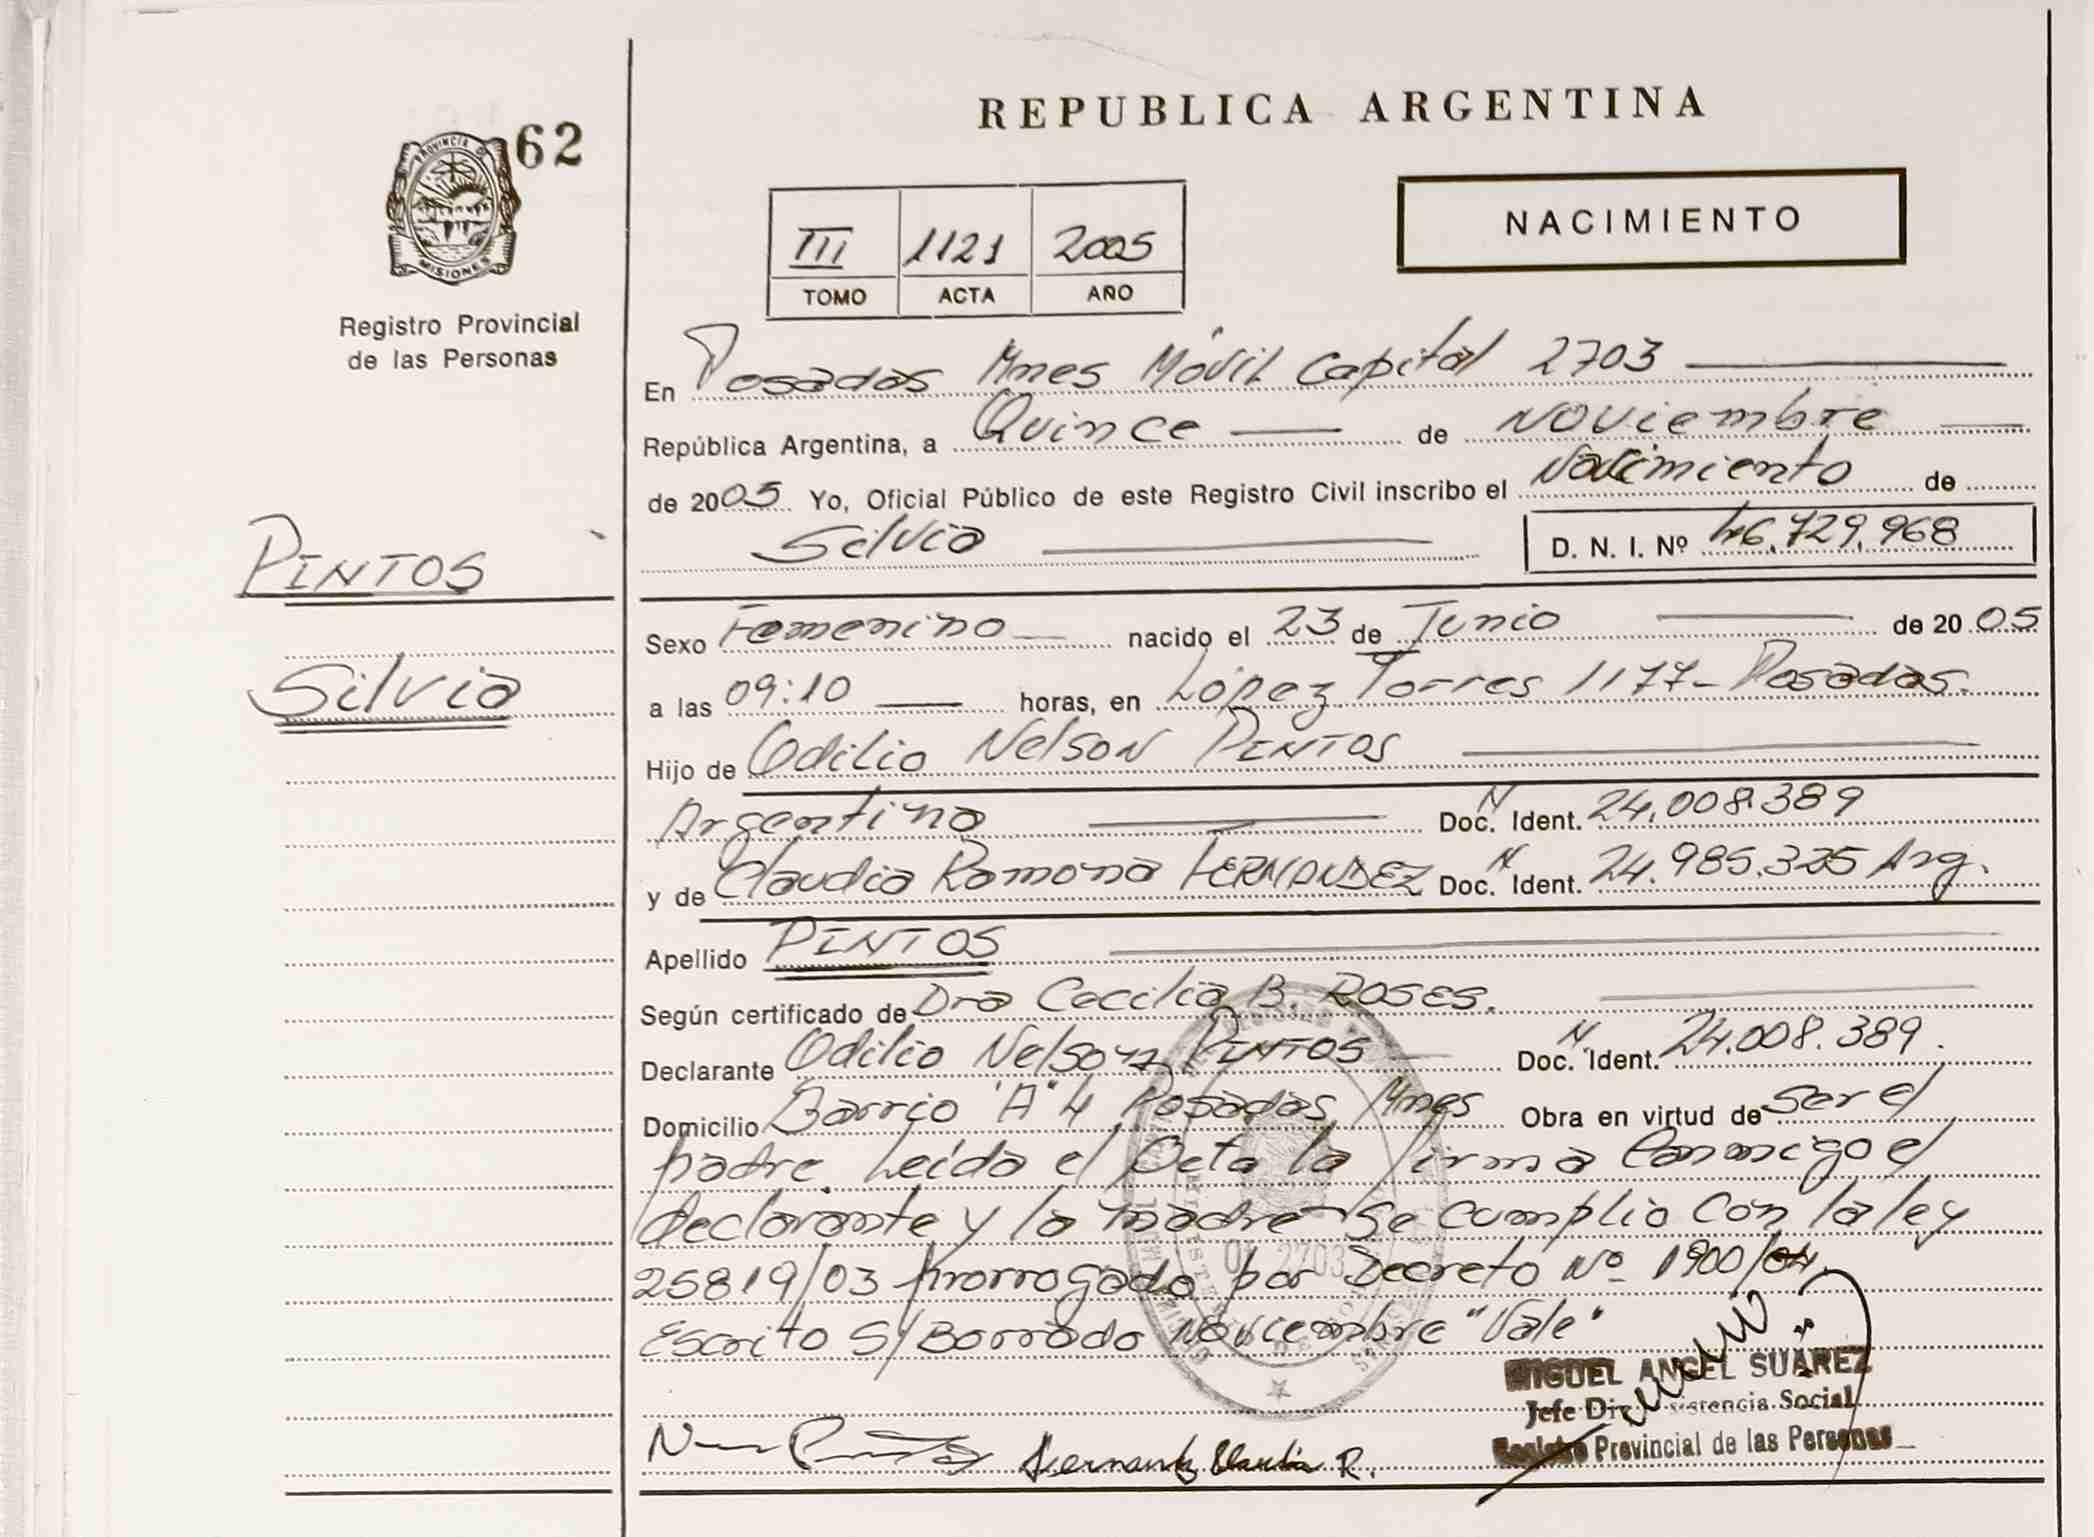 62
PROVINCIA DE
MISIONES
Registro Provincial
de las Personas
PINTOS
Silvia
REPUBLICA ARGENTINA
III 1121 2005
TOMO ACTA AÑO
NACIMIENTO
En Posadas Mnes Móvil Capital 2703
República Argentina, a Quince de Noviembre
de 2005 Yo, Oficial Público de este Registro Civil inscribo el Nacimiento de
Silvia D. N. I. Nº 46,729,968
Sexo Femenino nacido el 23 de Junio de 2005
a las 09:10 horas, en López Torres 1177- Posadas.
Hijo de Odilio Nelson PINTOS
Argentino Doc. N Ident. 24.008.389
y de Claudia Ramona FERNANDEZ Doc. N Ident. 24.985.325 Arg.
Apellido PINTOS
Según certificado de Dra Cecilia B. ROSES.
Declarante Odilio Nelson PINTOS Doc. N Ident. 24.008.389.
Domicilio Barrio "A" 4 Posadas Mnes Obra en virtud de ser el
padre. Leída el Acta la firma Conmigo el
declarante y la madre Se cumplio Con la ley
25819/03 Prorrogado por Decreto Nº 1900/04.
Escrito S/ Borrado Noviembre "Vale"
2703
MIGUEL ANGEL SUAREZ
Jefe Social
Registro Provincial de las Personas
Fernandez Claudia R.